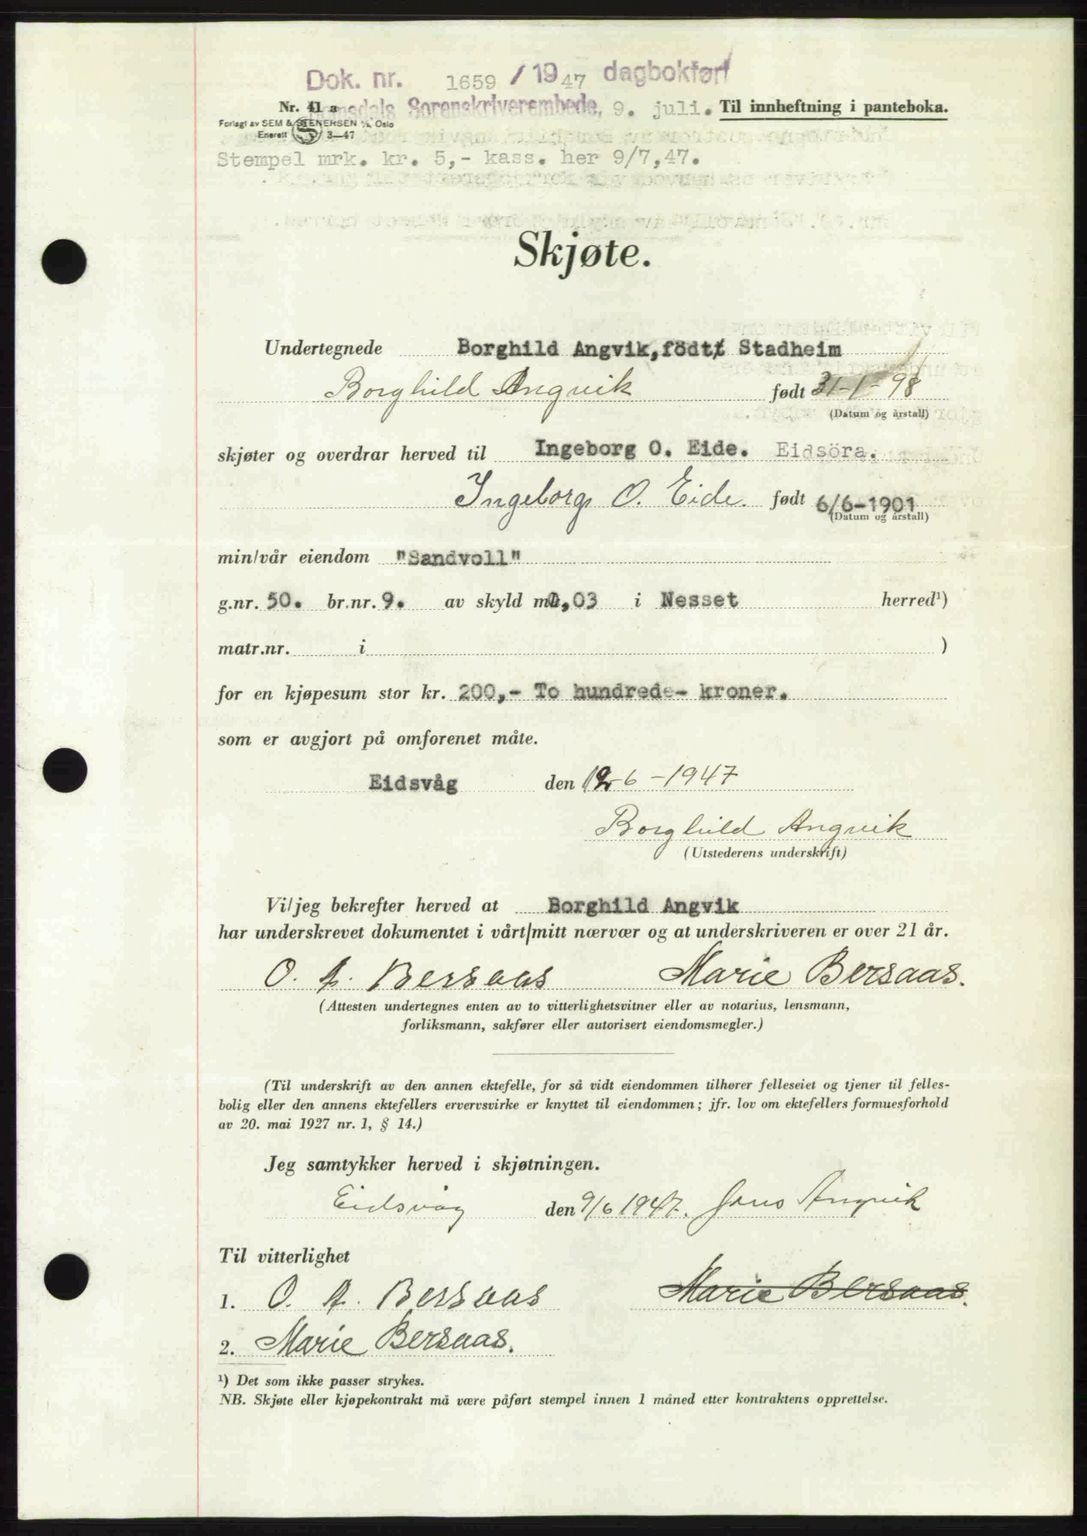 Dok. nr. 1659 / 1947 dagbokført
Nr. 41 a Sorenskriverembede, 9. juli. Til innheftning i panteboka.
Forlagt av SEM & STENERSEN A/S, Oslo
Enerett 3—47
Stempel mrk. kr. 5,- kass. her 9/7,47.
Skjøte.
Undertegnede Borghild Angvik, född, Stadheim
Borghild Angvik født 31-1-98
(Datum og årstall)
skjøter og overdrar herved til Ingeborg O. Eide. Eidsöra.
Ingeborg O. Eide. født 6/6-1901
(Datum og årstall)
min/vår eiendom "Sandvoll"
g.nr. 50. br.nr. 9. av skyld m 0,03 i Nesset herred¹)
matr.nr. i )
for en kjøpesum stor kr. 200,- To hundrede- kroner.
som er avgjort på omforenet måte.
Eidsvåg den 12-6-1947
Borghild Angvik
(Utstederens underskrift)
Vi/jeg bekrefter herved at Borghild Angvik
har underskrevet dokumentet i vårt/mitt nærvær og at underskriveren er over 21 år.
O. A. Bersaas Marie Bersaas.
(Attesten undertegnes enten av to vitterlighetsvitner eller av notarius, lensmann,
forliksmann, sakfører eller autorisert eiendomsmegler.)
(Til underskrift av den annen ektefelle, for så vidt eiendommen tilhører felleseiet og tjener til felles-
bolig eller den annens ektefellers ervervsvirke er knyttet til eiendommen; jfr. lov om ektefellers formuesforhold
av 20. mai 1927 nr. 1, § 14.)
Jeg samtykker herved i skjøtningen.
Eidsvåg den 9/6 1947. Jens Angvik
Til vitterlighet
1. O. A. Bersaas Marie Bersaas.
2. Marie Bersaas.
¹) Det som ikke passer strykes.
NB. Skjøte eller kjøpekontrakt må være påført stempel innen 1 måned etter kontraktens opprettelse.